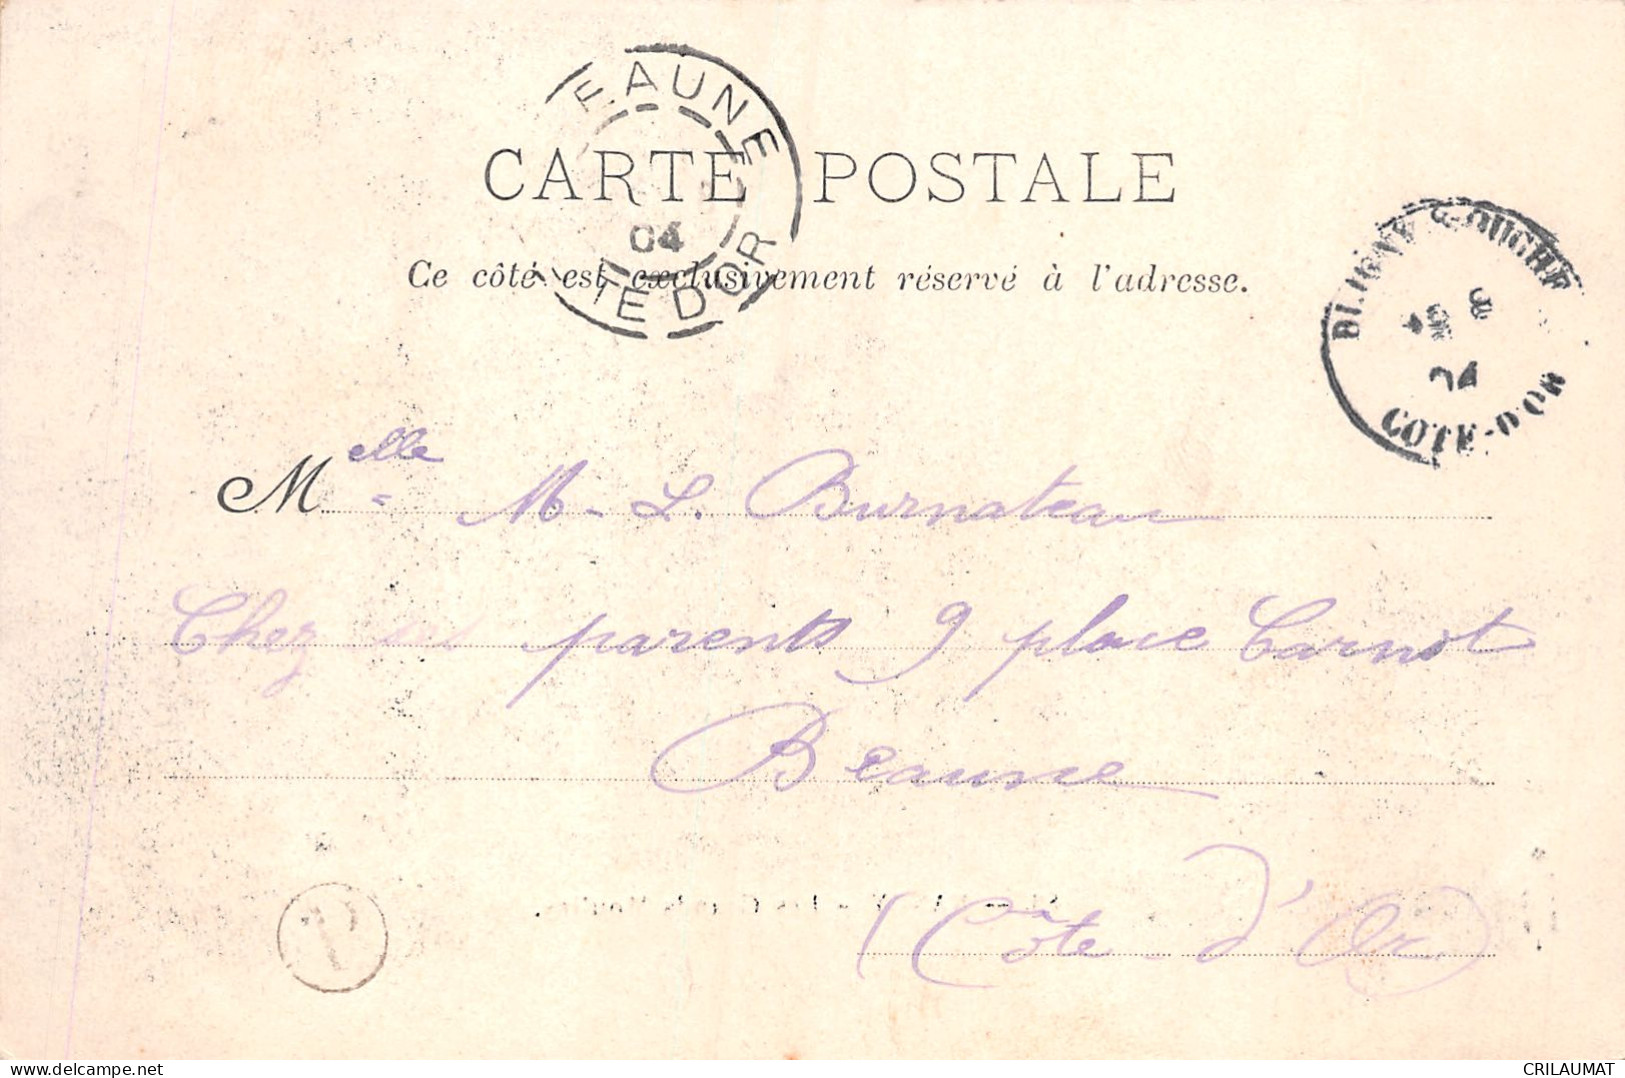 EAUNE
CARTE POSTALE
04
TE D'OR
Ce côté est exclusivement réservé à l'adresse.
BLIGNY S-OUCHE
8
04
COTE-D'OR
Melle M-L. Burnateau
Chez ses parents 9 place Carnot
Beaune
(Côte-d'Or)
www.delcampe.net
CRILAUMAT